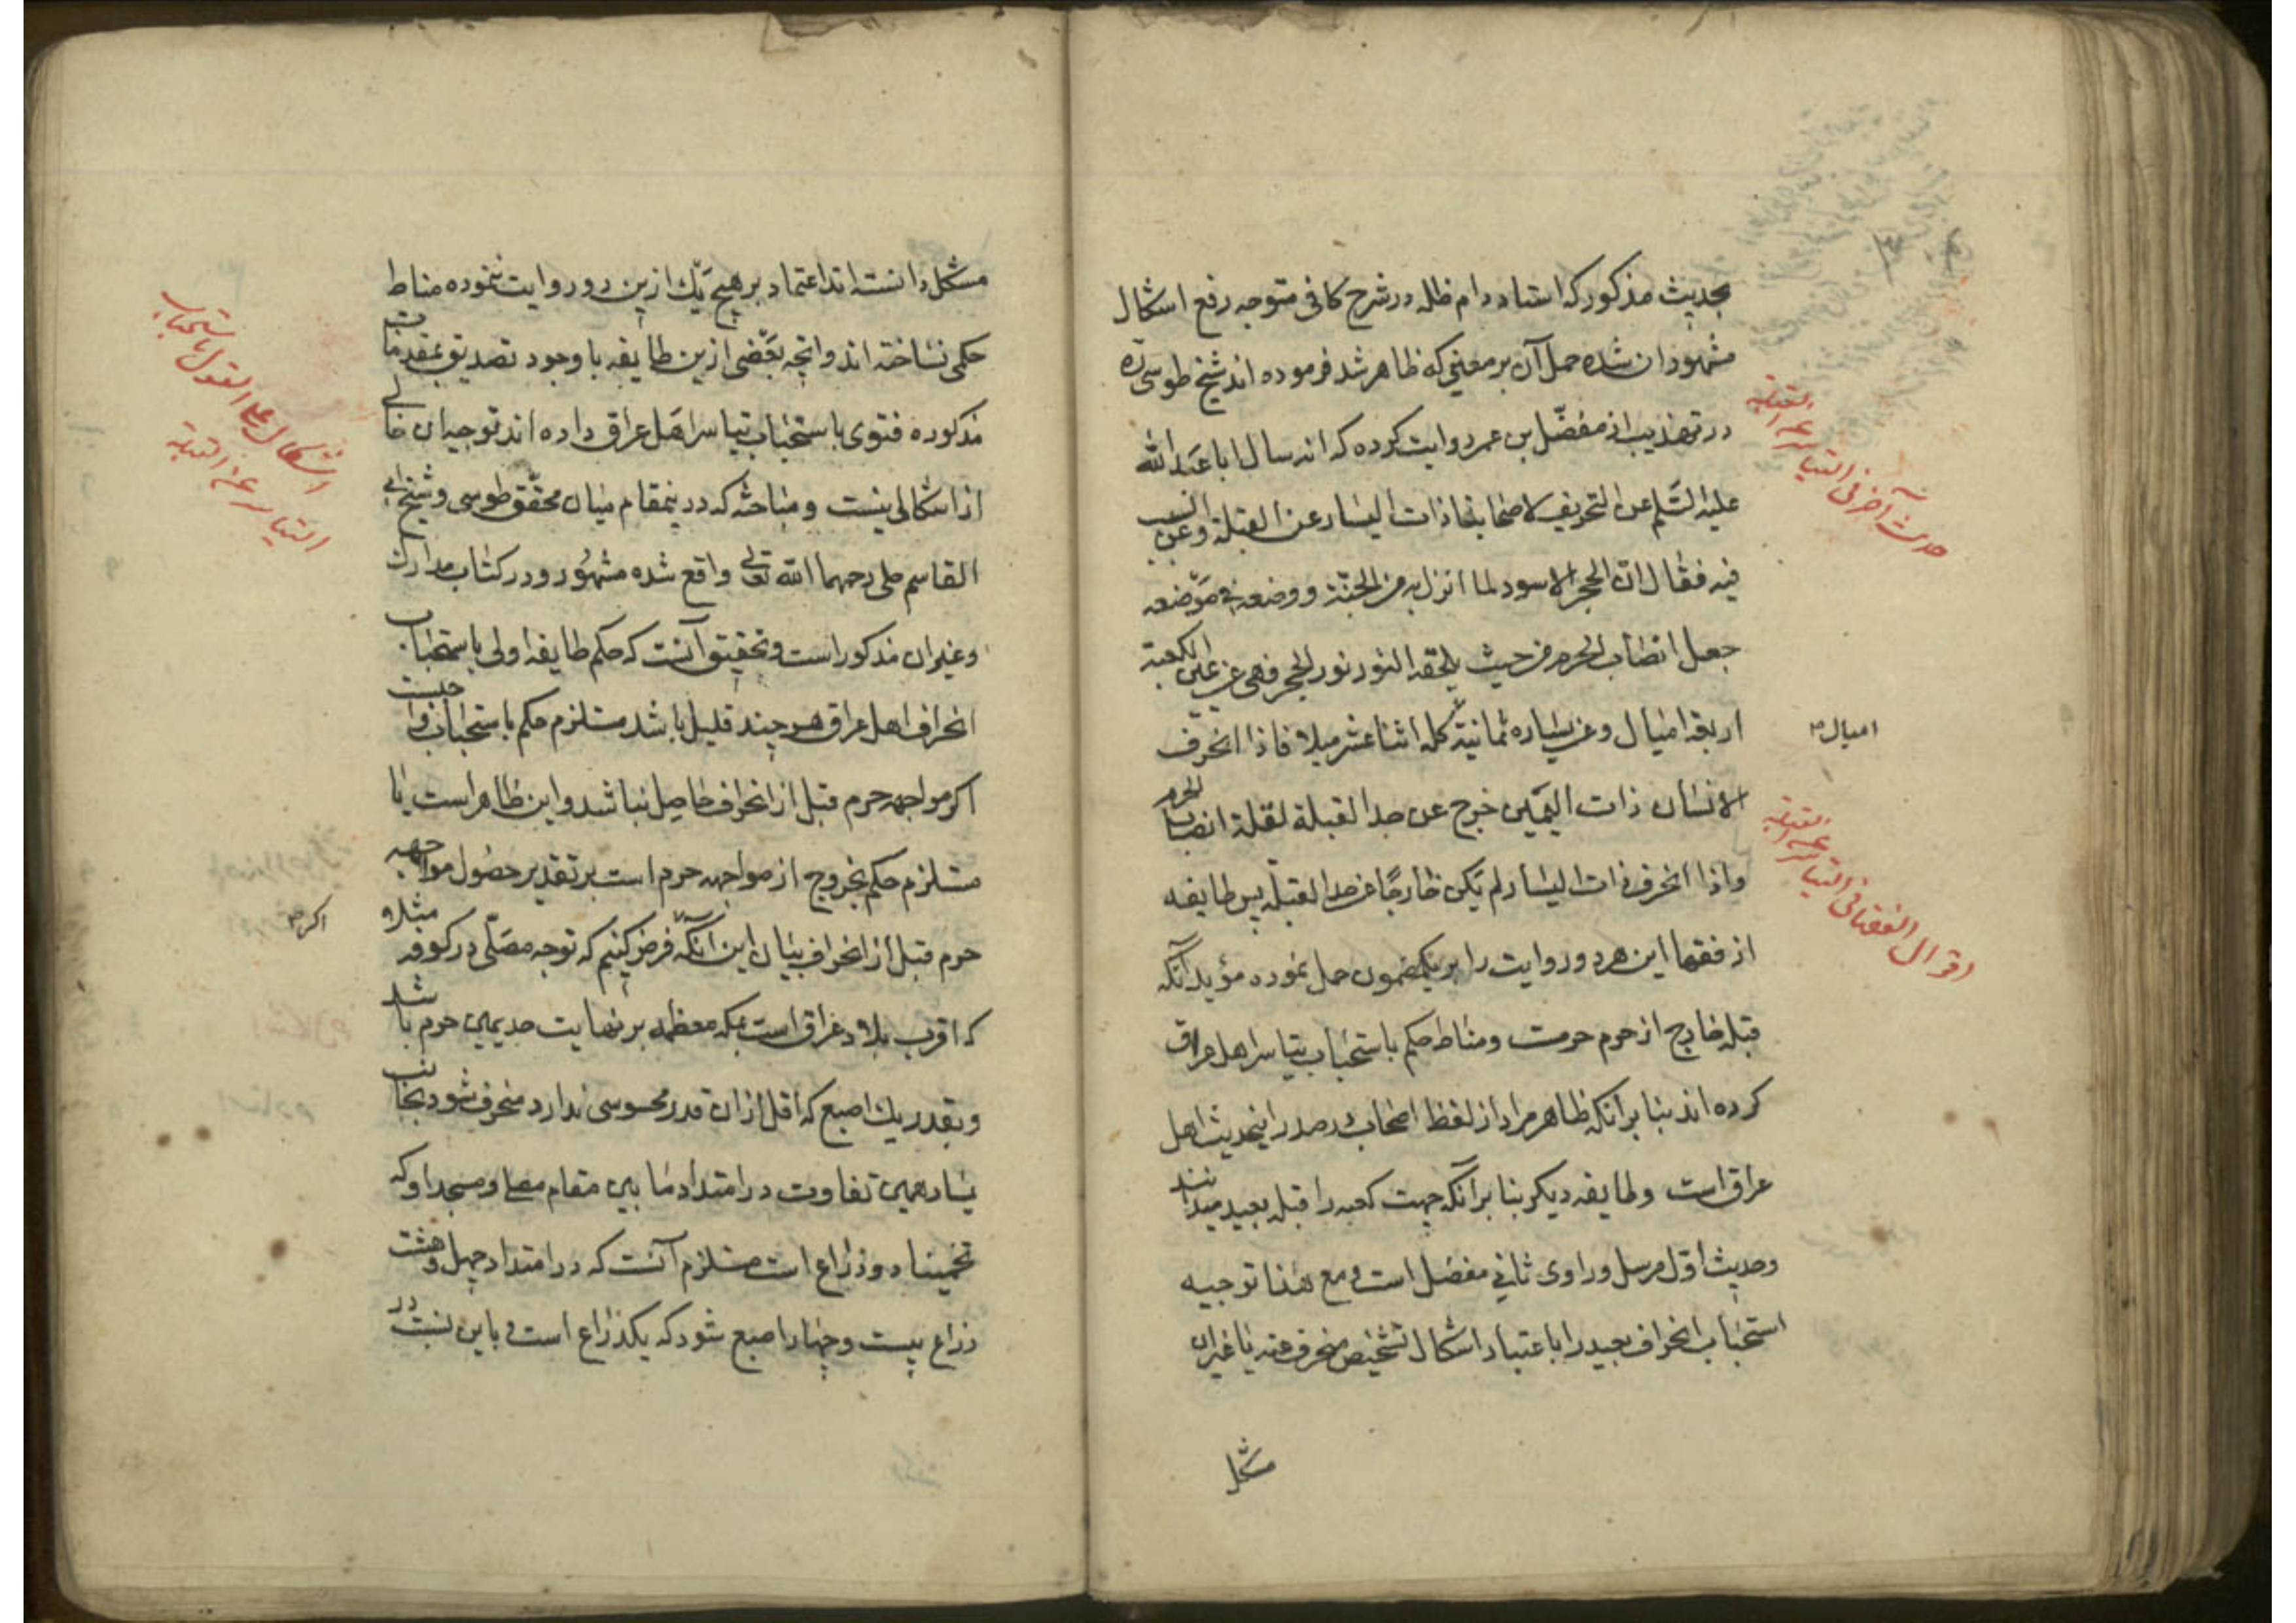 بحدیث مذکور که استاد دام ظله در شرح کافی متوجه رفع اشکال
مشهور ان شده حمل آن بر معنیی که ظاهر شد فرموده اند شیخ طوسی ره
در تهذیب از مفضّل بن عمر روایت کرده که انه سال ابا عبد الله
علیه السّلم عن التحریف لاصحابنا ذات الیسار عن القبلة و عن السبب
فیه فقال انّ الحجر الاسود لما انزل به من الجنّة و وضعه فی موضعه
جعل انصاب الحرم من حیث یلحقه النور نور الحجر فهی عن یمین الکعبة
اربعة امیال و عن یساره ثمانیة کله اثنا عشر میلا فاذا انحرف
الانسان ذات الیمین خرج عن حد القبلة لقلة انصاب الحرم
و اذا انحرف ذات الیسار لم یکن خارجًا عن حد القبلة پس طایفه
از فقها این هر دو روایت را بر یکمضمون حمل نموده مؤید آنکه
قبله خارج از حرم حرمت و مناط حکم باستحباب تیاسر اهل عراق
کرده اند بنا بر انکه ظاهر مراد از لفظ اصحاب در صدر اینحدیث اهل
عراق است و طایفه دیکر بنا بر آنکه جهت کعبه را قبله بعید میدانند
و حدیث اوّل مرسل و راوی ثانی مفضل است و مع هذا توجیه
استحباب انحراف بعید را باعتبار اشکال تشخیص منحرف عنه یا غیر ان
مشکل
حدیث آخر فی التیاسر عن القبلة
امیال
اقوال الفقها فی التیاسر عن القبلة
مشکل دانسته اند اعتماد بر هیچ یک ازین دو روایت ننموده مناط
حکمی نساخته اند و انچه بعضی ازین طایفه با وجود تصدیق بمقدمات
مذکوره فتوی باستحباب تیاسر اهل عراق داده اند توجیه ان خالی
از اشکالی نیست و مباحثه که در ینمقام میان محقّق طوسی و شیخ ابی
القاسم حلی رحمهما الله تعالی واقع شده مشهور و در کتاب مدارک
و غیر ان مذکور است و تحقیق آنست که حکم طایفه اولی باستحباب
انحراف اهل عراق هر چند قلیل باشد مستلزم حکم باستحباب واجبست
اکر مواجهه حرم قبل از انحراف حاصل نباشد و این ظاهر است یا
مستلزم حکم بخروج از مواجهه حرم است بر تقدیر حصول مواجهه
حرم قبل از انحراف بیان این آنکه فرض کنیم که توجه مصلّی در کوفه مثلا
که اقرب بلاد عراق است بمکه معظمه بر نهایت حد یمین حرم باشد
و بقدر یک اصبع که اقل از ان قدر محسوسی ندارد منحرف شود بجانب
یسار همین تفاوت در امتداد ما بین مقام مصلی و مسجد او که
تخمینا دو ذراع است مستلزم آنست که در امتداد چهل و هشت
ذراع بیست و چهار اصبع شود که یکذراع است و باین نسبت در
اشکال علی القول باستحباب
التیاسر عن القبلة
اکر